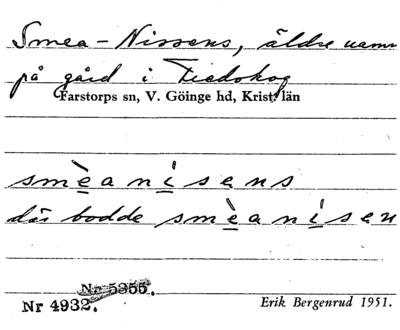 Smea-Nissens, äldre namn
på gård i Tiedskog
Farstorps sn, V. Göinge hd, Krist. län
smèanìsens
där bodde smèanìsen
Nr 5355.
Nr 4932.
Erik Bergenrud 1951.